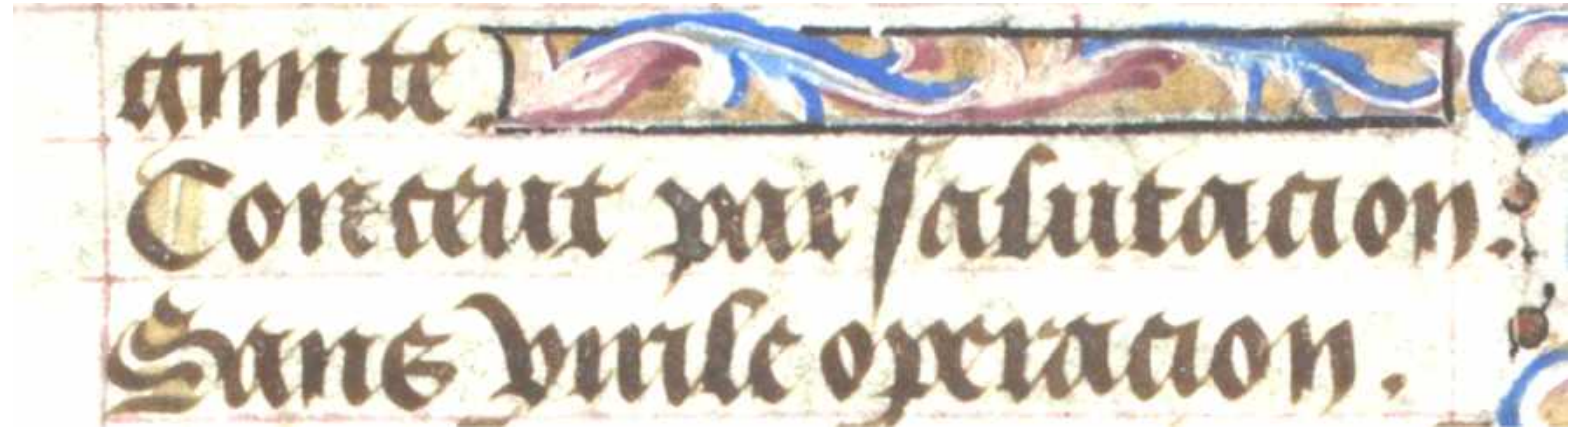 ginite
Conceut par salutacion.
Sans virile operacion.